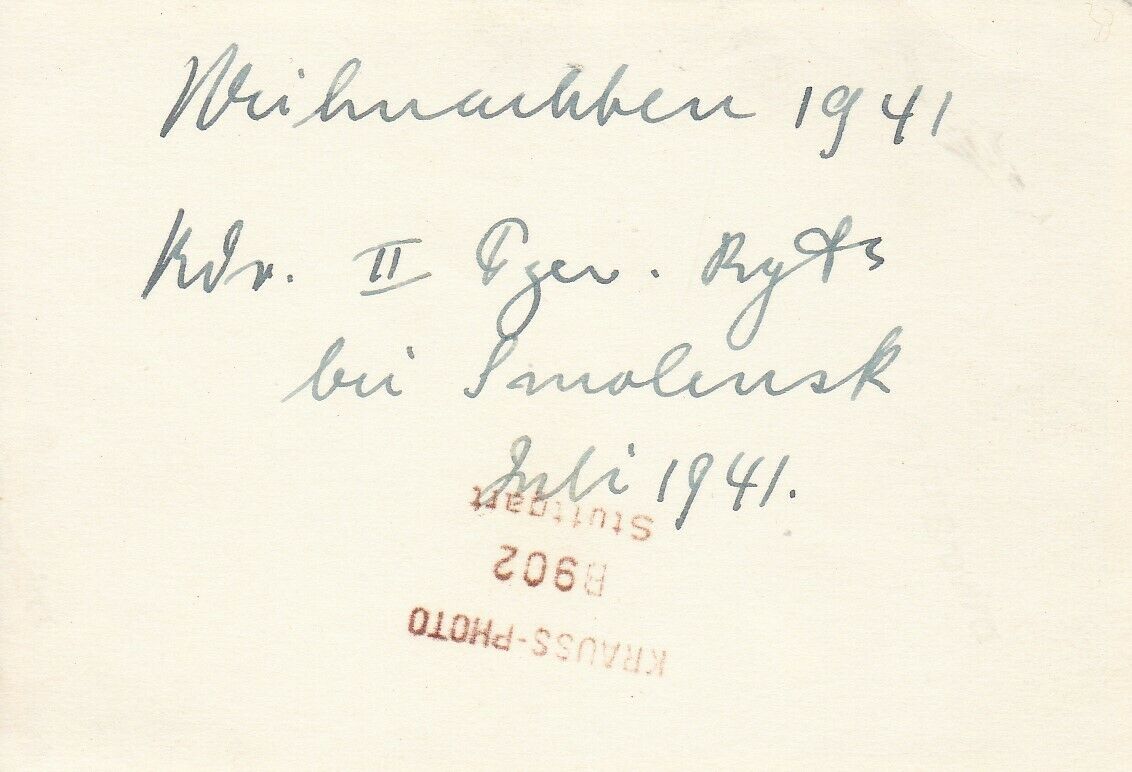 Weihnachten 1941
Kdr. II Pzer. Rgts
bei Smolensk
Juli 1941.
KRAUSS-PHOTO
B902
Stuttgart